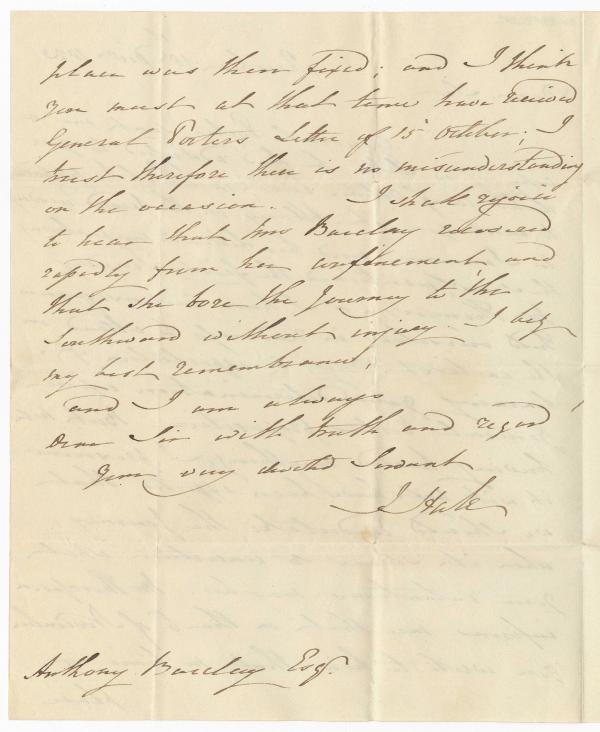 place was then fixed; and I think
you must at that time have received
General Porters Letter of 15 October; I
trust therefore there is no misunderstanding
on the occasion. I shall rejoice
to hear that Mrs Barclay recovered
rapidly from her confinement and
that she bore the Journey to the
Southward without injury. I beg
my best remembrance,
and I am always
Dear Sir with truth and regard
Your very devoted Servant
J Hale
Anthony Barclay Esqr.